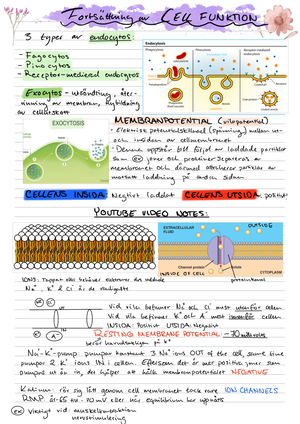 Fortsättning av CELL FUNKTION
3 typer av endocytos:
- Fagocytos
- Pinocytos
- Receptor-mediered endocytos
Endocytosis
Phagocytosis
Pinocytosis
Receptor-mediated endocytosis
Exocytos - utsöndring, åter-
vinning av membran, nybildning
av cellväxt
EXOCYTOSIS
MEMBRANPOTENTIAL (vilopotential)
- Elektrisk potentialskillnad (spänning) mellan ut-
och insidan av cellmembranet
- Denna uppstår till följd av laddade partiklar
Som ex joner och proteiner separeras av
membranet och därmed attraherar partiklar av
motsatt laddning på andra sidan
CELLENS INSIDA: Negativt laddat CELLENS UTSIDA: positivt
YOUTUBE VIDEO NOTES:
EXTRACELLULAR FLUID
OUTSIDE
Channel protein
INSIDE OF CELL
CYTOPLASM
IONS:
Na⁺, K⁺ & Cl⁻ är de vanligaste
proteinkanal
Vid vila befinner Na⁺ och Cl⁻ mest utanför cellen
Vid vila befinner K⁺ och A⁻ mest innanför cellen
INSIDA: Positivt UTSIDA: Negativt
RESTING MEMBRANE POTENTIAL: -70 millivolts
beror huvudsakligen på K⁺
Na⁺-K⁺-pump: pumpar konstant 3 Na⁺ ions OUT of the cell, same time
pumpar 2 K⁺ ions IN i cellen. Eftersom det är mer positiva joner som
pumpas ut än in, det hjälper att hålla membranpotentialet NEGATIVE
Kalium: rör sig lätt genom cell membranet tack vare ION CHANNELS
RMP är -65 till -70 mV eller när equilibrium har uppnåtts
ex Viktigt vid: muskelkontraktion
nervstimulering